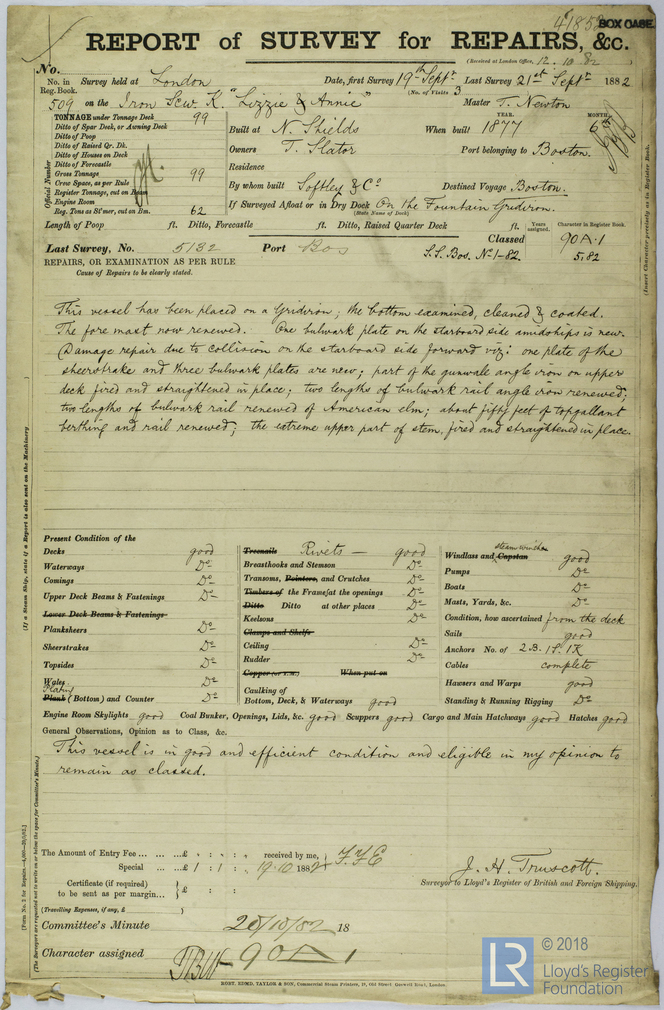 41852 BOX CASE
REPORT of SURVEY for REPAIRS, &c.
(Received at London Office, 12.10.82
No.
No. in Survey held at London Date, first Survey 19th Septr Last Survey 21st Septr 1882
Reg. Book. (No. of Visits 3
509 on the Iron Scw K. "Lizzie & Annie" Master T. Newton
TONNAGE under Tonnage Deck 99
Ditto of Spar Deck, or Awning Deck
Ditto of Poop
Ditto of Raised Qr. Dk.
Ditto of Houses on Deck
Ditto of Forecastle
Gross Tonnage 99
Crew Space, as per Rule
Register Tonnage, cut on Beam
Engine Room
Reg. Tons as St'mer, cut on Bm. 62
Official Number
YEAR. MONTH.
Built at N. Shields When built 1877 6
Owners T. Slator Port belonging to Boston.
Residence
By whom built Softley & Co Destined Voyage Boston.
If Surveyed Afloat or in Dry Dock On the Fountain Gridiron.
(State Name of Dock)
Length of Poop ft. Ditto, Forecastle ft. Ditto, Raised Quarter Deck ft. Years assigned. Character in Register Book.
Classed 90A.1
Last Survey, No. 5132 Port Bos S.S. Bos. No 1-82. 5.82
REPAIRS, OR EXAMINATION AS PER RULE
Cause of Repairs to be clearly stated.
This vessel has been placed on a Gridiron; the bottom examined, cleaned & coated.
The fore mast now renewed. One bulwark plate on the starboard side amidships is new.
Damage repair due to collision on the starboard side forward viz: one plate of the
sheerstrake and three bulwark plates are new; part of the gunwale angle iron on upper
deck fired and straightened in place; two lengths of bulwark rail angle iron renewed;
two lengths of bulwark rail renewed of American elm; about fifty feet of topgallant
berthing and rail renewed; the extreme upper part of stem, fired and straightened in place.
Present Condition of the
Decks good
Waterways Do
Comings Do
Upper Deck Beams & Fastenings Do
Lower Deck Beams & Fastenings
Planksheers Do
Sheerstrakes Do
Topsides Do
Wales Do
Plating
Plank (Bottom) and Counter Do
Treenails Rivets — good
Breasthooks and Stemson Do
Transoms, Pointers, and Crutches Do
Timbers of the Frame at the openings Do
Ditto Ditto at other places Do
Keelsons Do
Clamps and Shelfs
Ceiling Do
Rudder Do
Copper (or Y.M.) When put on
Caulking of
Bottom, Deck, & Waterways good
steam winches
Windlass and Capstan good
Pumps Do
Boats Do
Masts, Yards, &c. Do
Condition, how ascertained from the deck
Sails good
Anchors No. of 2.B. 1S. 1K
Cables complete
Hawsers and Warps good
Standing & Running Rigging Do
Engine Room Skylights good Coal Bunker, Openings, Lids, &c. good Scuppers good Cargo and Main Hatchways good Hatches good
General Observations, Opinion as to Class, &c.
This vessel is in good and efficient condition and eligible in my opinion to
remain as classed.
The Amount of Entry Fee ... ... ...£ : : received by me,
Special ... ...£ 1 : 1 : 19.10 1882
Certificate (if required) to be sent as per margin... £ : :
(Travelling Expenses, if any, £ )
J. H. Truscott.
Surveyor to Lloyd's Register of British and Foreign Shipping.
Committee's Minute 20/10/82 18
Character assigned 90A1
ROBT. EDMD. TAYLOR & SON, Commercial Steam Printers, 19, Old Street Goswell Road, London.
(If a Steam Ship, state if a Report is also sent on the Machinery.
(The Surveyors are requested not to write on or below the space for Committee's Minute.)
(Insert Character precisely as in Register Book.
LR © 2018
Lloyd's Register
Foundation